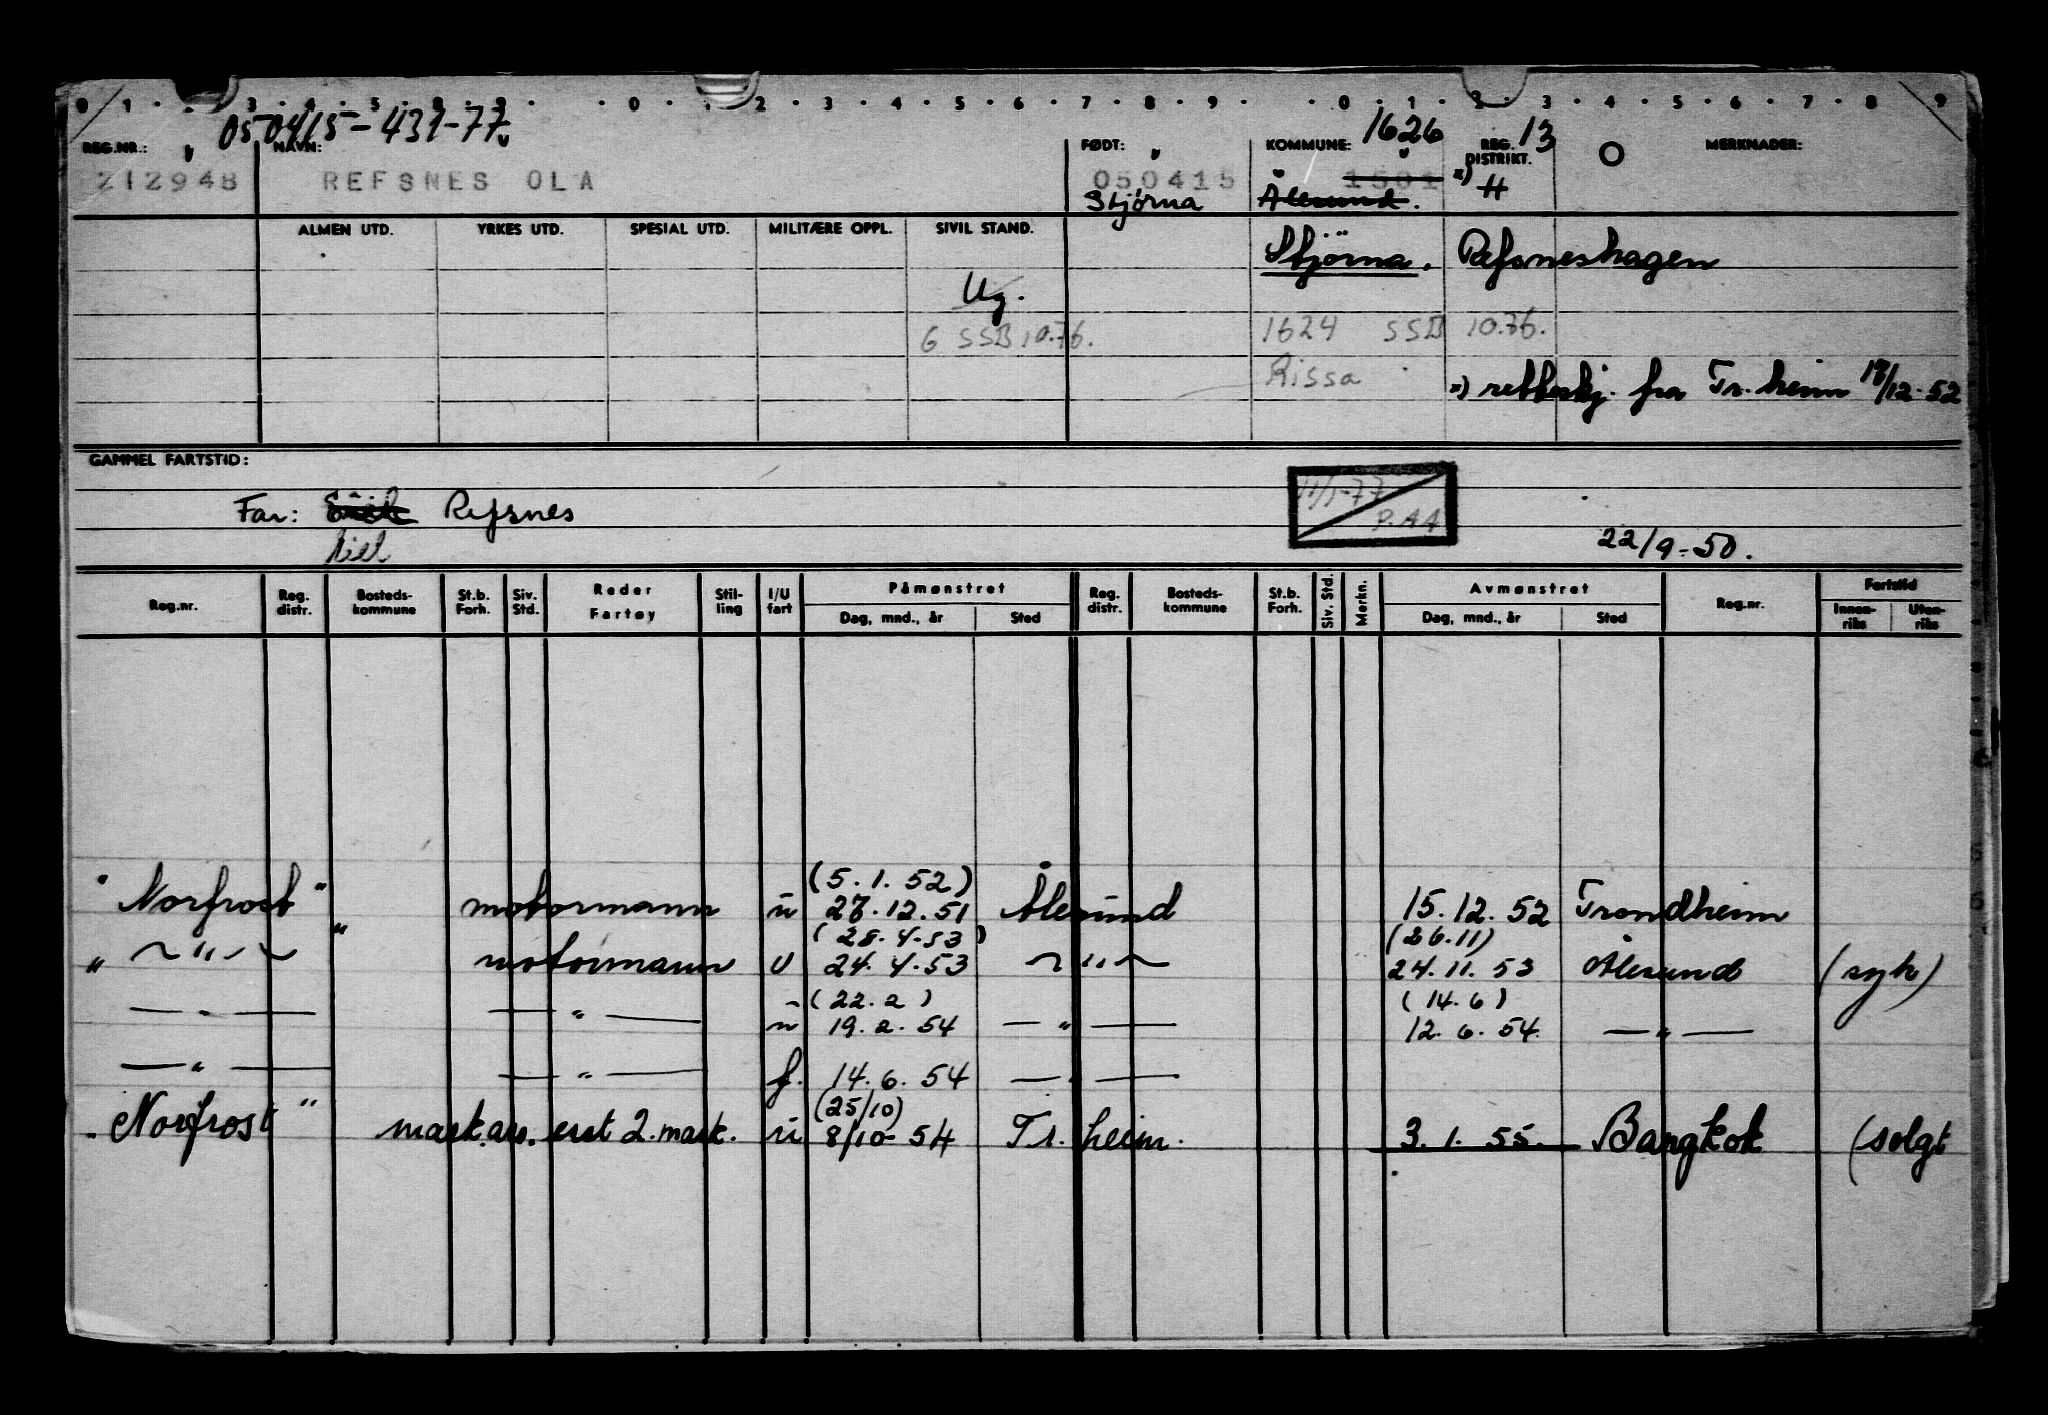 0 1 . . 3 . 4 . 5 . 8 . 9 . . 0 . 1 2 . 3 . 4 . 5 . 6 . 7 . 8 . 9 . . 0 . 1 . 2 . 3 . 4 . 5 . 6 . 7 . 8 . 9
050415-431-77 1626 13
REG.NR.: NAVN: FØDT: KOMMUNE: REG. DISTRIKT. O MERKNADER:
212948 REFSNES OLA 050415 1501 H
Stjørna Ålesund.
ALMEN UTD. YRKES UTD. SPESIAL UTD. MILITÆRE OPPL. SIVIL STAND.
Stjörna, Refsneshagen
Ug.
6 SSB 10.76. 1624 SSB 10.76.
Rissa
rettskj. fra Tr.heim 17/12-52
GAMMEL FARTSTID:
11/1-77
P.A4
Far: Refsnes
22/9-50.
Reg.nr. Reg. distr. Bosteds-kommune St.b. Forh. Siv. Std. Reder Fartøy Stil-ling I/U fart Påmønstret Dag, mnd., år Sted Reg. distr. Bosteds-kommune St.b. Forh. Siv. Std. Merkn. Avmønstret Dag, mnd., år Sted Reg.nr. Fartstid Innen-riks Uten-riks
(5.1.52)
"Norfrost" motormann u 27.12.51 Ålesund 15.12.52 Trondheim
(28.4-53) (26.11)
" — " — motormann U 24.4.53 — " — 24.11.53 Ålesund (syk)
(22.2) (14.6)
— " — — " — u 19.2.54 — " — 12.6.54 — " —
— " — — " — f. 14.6.54 — " —
(25/10)
"Norfrost" mask.ass. erst 2. mask. u 8/10-54 Tr.heim. 3.1.55. Bangkok (solgt